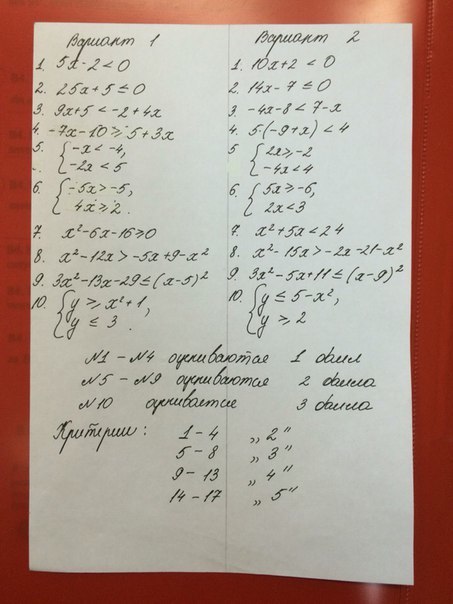 Вариант 1
1. 5x-2<0
2. 25x+5≤0
3. 9x+5<-2+4x
4. -7x-10≥5+3x
5. {-x<-4,
-2x<5
6. {-5x>-5,
4x≥2.
7. x²-6x-16≥0
8. x²-12x>-5x+9-x²
9. 3x²-13x-29≤(x-5)²
10. {y≥x²+1,
y≤3.
Вариант 2
1. 10x+2<0
2. 14x-7≤0
3. -4x-8<7-x
4. 5·(-9+x)<4
5 {2x≥-2
-4x<4
6. {5x≥-6,
2x<3
7. x²+5x<24
8. x²-15x>-2x-21-x²
9. 3x²-5x+11≤(x-9)²
10. {y≤5-x²,
y≥2
№1-№4 оцениваются 1 балл
№5-№9 оцениваются 2 балла
№10 оценивается 3 балла
Критерии: 1-4 „2"
5-8 „3"
9-13 „4"
14-17 „5"